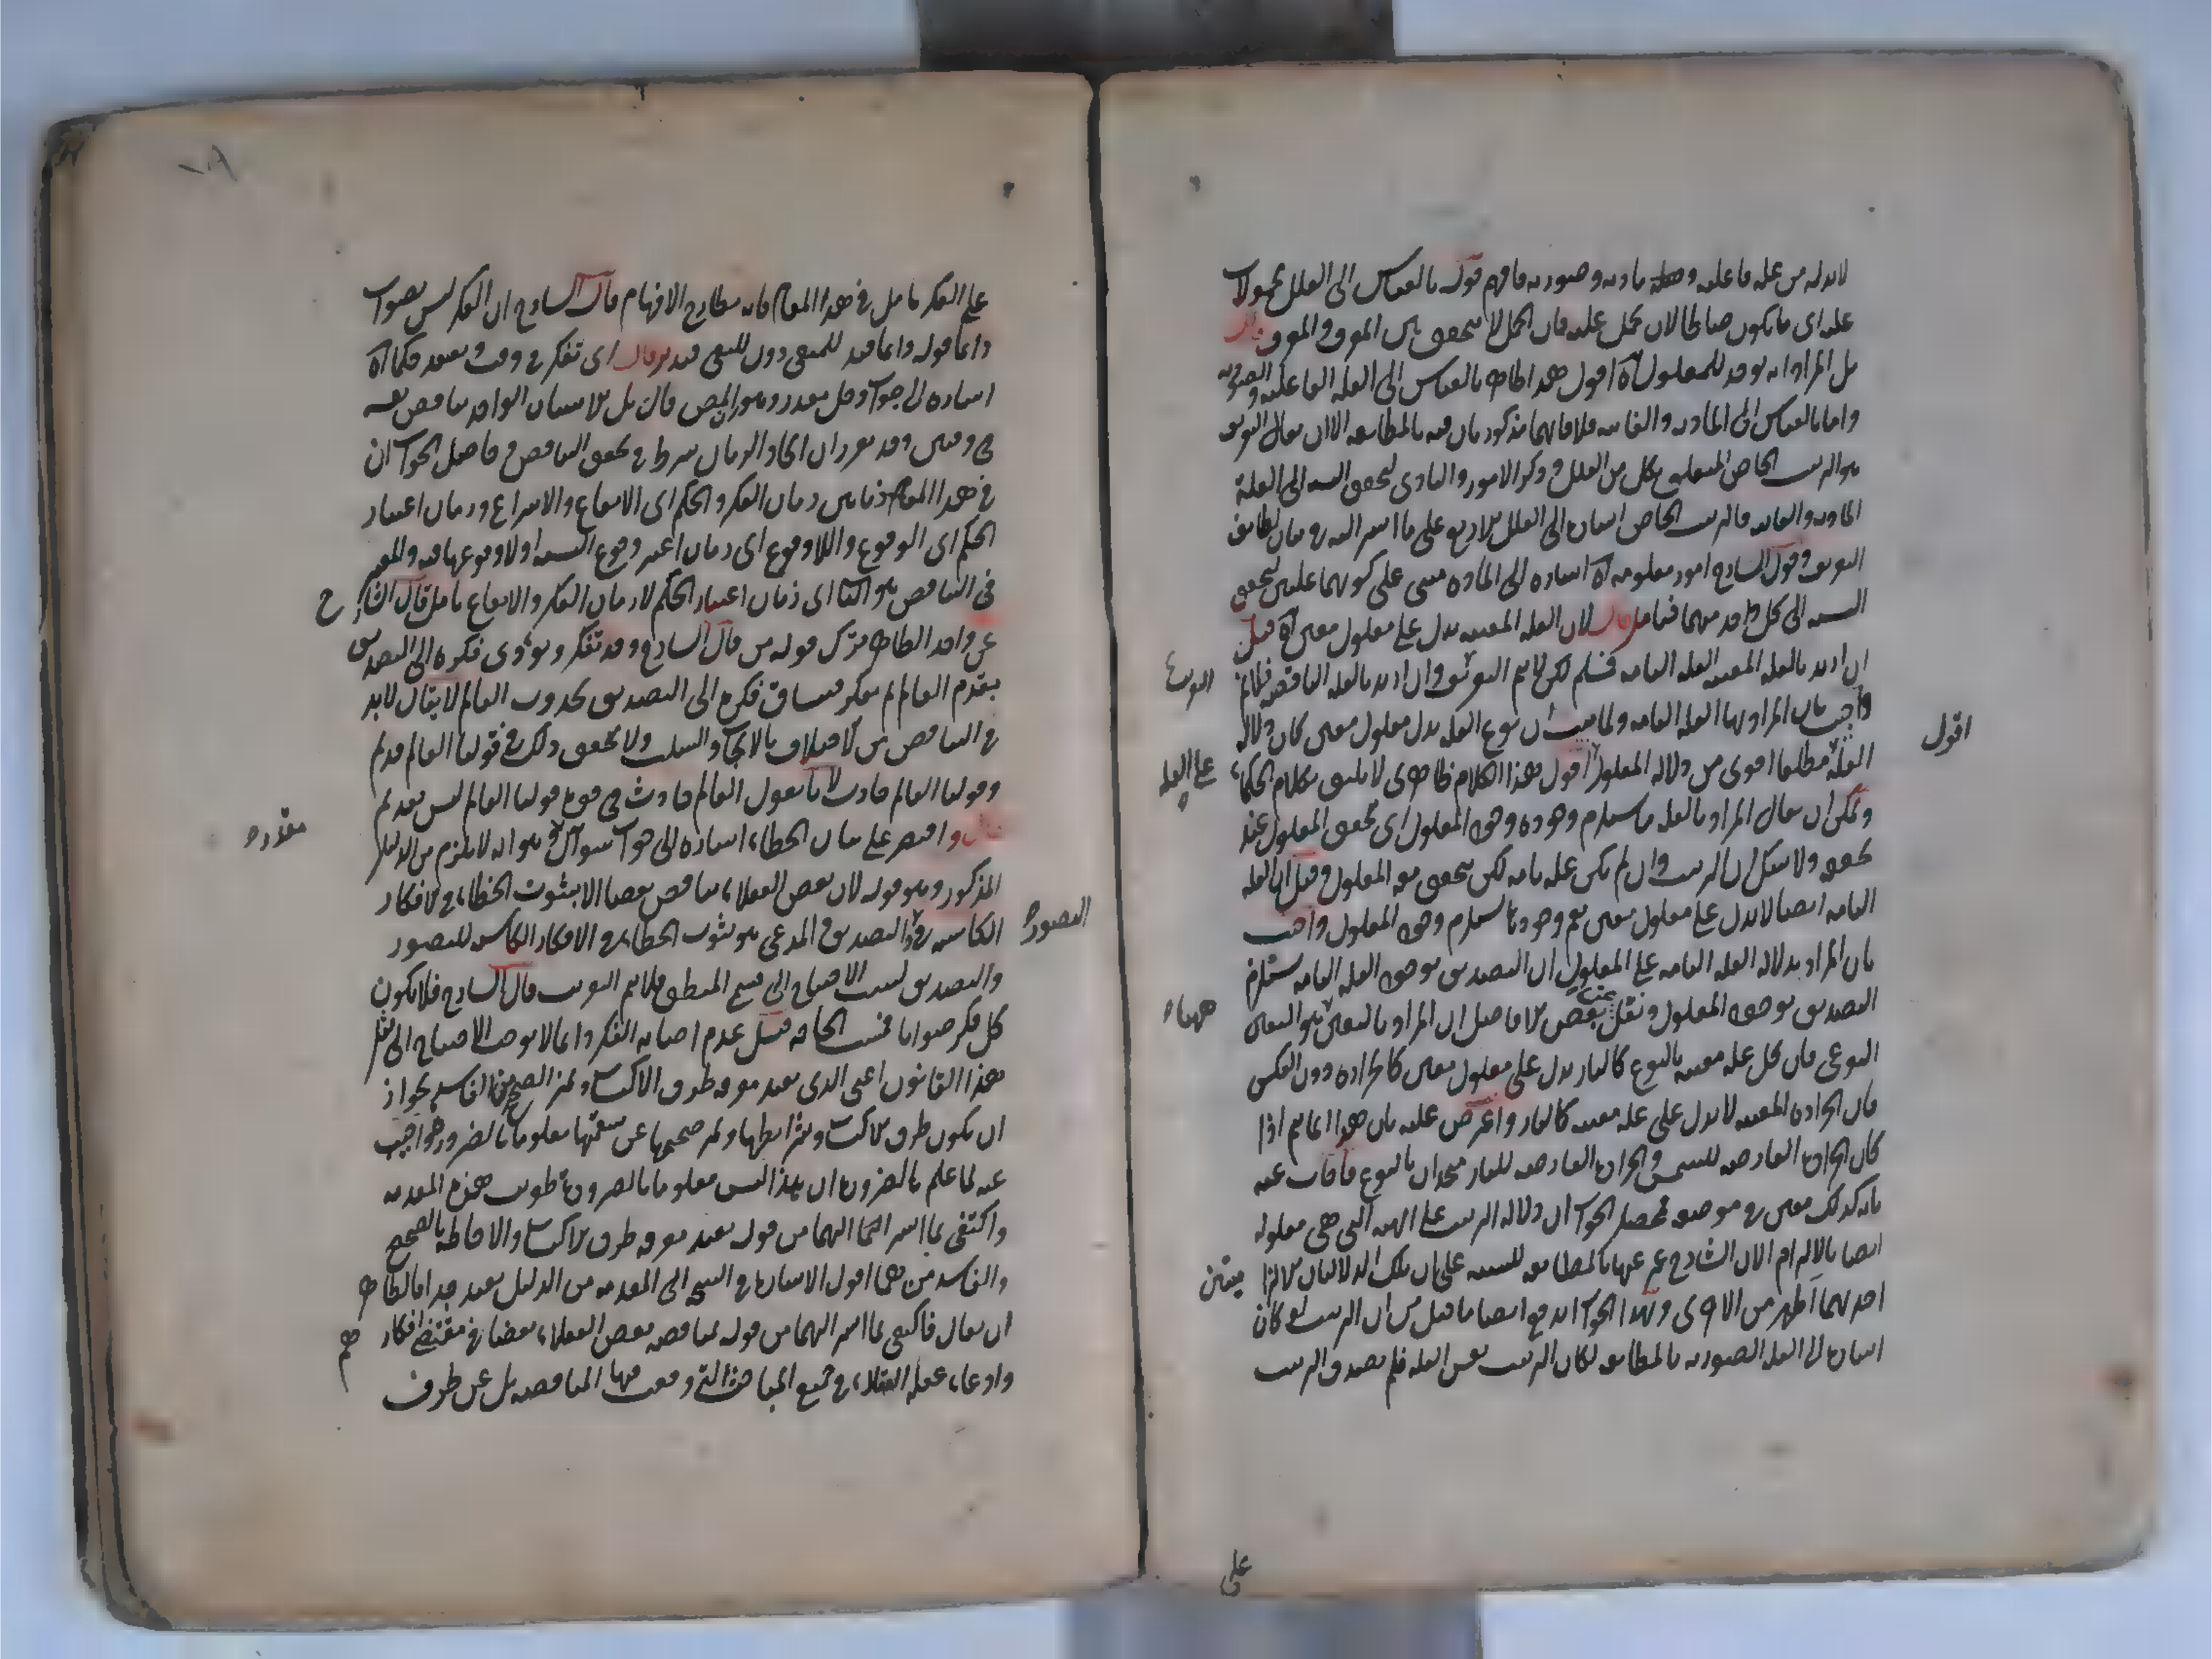 لابد له من علة فاعلية وعلة مادية وصورية فافهم قوله بالقياس الى العلل محمولات
عليه اى ما يكون صالحا لان يحمل عليه فان الحمل لا يتحقق بين المعرف والمعرف قال
بل المراد انه يوجد للمعلول آه اقول هذا الظاهر بالقياس الى العلة الفاعلية والصورية
واما بالقياس الى المادية والغائية فلا فانهما مذكورتان فيه بالمطابقة الا ان يقال التعريف
هو الترتيب الخاص المتعلق بكل من العلل وذكر الامور والتادى لتحقق النسبة الى العلة
المادية والغائية فالترتيب الخاص اشارة الى العلل الاربع على ما اشير اليه في بيان لطايف
التعريف وقول الشارح امور معلومة آه اشارة الى المادة مبنى على كونهما علتين لتحقق
النسبة الى كل واحد منهما فتامل قال لان العلة المعينة تدل على معلول معين آه قيل
ان اريد بالعلة المعينة العلة التامة فمسلم لكن لا يتم التعريف وان اريد بالعلة الناقصة فلا يتم
واجيب بان المراد بها العلة التامة ولما ثبت ان نوع العلة يدل معلول معين كان دلالة
العلة مطلقا اقوى من دلالة المعلول اقول هذا الكلام ظاهرى لا يليق بكلام الحكماء
ويمكن ان يقال المراد بالعلة ما يستلزم وجوده وجود المعلول اى تحقق المعلول عند
تحققه ولا شك ان الترتيب وان لم يكن علة تامة لكن يتحقق معه المعلول وقيل ان العلة
التامة ايضا لا تدل على معلول معين نعم وجودها يستلزم وجود المعلول واجيب
بان المراد بدلالة العلة التامة على المعلول ان التصديق بوجود العلة التامة يستلزم
التصديق بوجود المعلول ونقل بعض الافاضل ان المراد بالتعين هو التعين
النوعى فان كل علة معينة بالنوع كالنار يدل على معلول معين كالحرارة دون العكس
فان الحرارة المعينة لا تدل على علة معينة كالنار واعترض عليه بان هذا انما يتم اذا
كان الحرارة العارضة للشمس والحرارة العارضة للنار متحدان بالنوع فاجاب عنه
بانه كذلك معين في موضعه فمحصل الجواب ان دلالة الترتيب على الهيئة التى هى معلوله
ايضا بالالتزام الا ان الشارح عبر عنها بالمطابقة للتنبيه على ان تلك الدلالتان الالتزا ميتين
احديهما اظهر من الاخرى وبهذا الجواب اندفع ايضا ما قيل من ان الترتيب لو كان
اشارة الى العلة الصورية بالمطابقة لكان الترتيب نفس العلة فلم يصدق الترتيب
اقول
التعريف
على العلة
ههنا
على
على الفكر تامل في هذا المقام فانه مطارح الافهام قال الشارح ان الفكر ليس بصواب
دائما قوله دائما قيد للمنفى دون للنفى فتدبر قال اى تفكر في وقت ويعتقد حكما آه
اشارة الى جواب دخل مقدر وهو النقض قال بل الانسان الواحد يناقض نفسه
في وقتين وقد تقرر ان اتحاد الزمان شرط في تحقق التناقض وحاصل الجواب ان
في هذا المقام زمانين زمان الفكر والحكم اى الايقاع والانتزاع وزمان اعتبار
الحكم اى الوقوع واللاوقوع اى زمان اعتبر وقوع النسبة اولا وقوعها فيه والمعتبر
في التناقض هو الثانى اى زمان اعتبار الحكم لا زمان الفكر والايقاع تامل قال الشارح
عن واحد الظاهر ترك قوله من قال الشارح وقد تفكر ويؤدى فكره الى التصديق
بقدم العالم ثم يفكر فينساق فكره الى التصديق بحدوث العالم لا يقال لابد
في التناقض من الاختلاف بالايجاب والسلب ولا يتحقق ذلك في قولنا العالم قديم
وقولنا العالم حادث لانا نقول العالم حادث في قوة قولنا العالم ليس بقديم
قال واقتصر على بيان الخطاء اشارة الى جواب سوال وهو انه لا يلزم من الدليل
المذكور وهو قوله لان بعض العقلاء يناقض بعضا الا ثبوت الخطاء في الافكار
الكاسبة في التصديق والمدعى هو ثبوت الخطاء في الافكار الكاسبة للتصور
والتصديق ليثبت الاحتياج الى قسمى المنطق فلا يتم التعريب قال الشارح فلا يكون
كل فكر صوابا فمست الحاجة قيل عدم اصابة الفكر دائما لا يوجب الاحتياج الى مثل
هذا القانون اعنى الذى يفيد معرفة طرق الاكتساب وتميز الصحيح من الفاسد لجواز
ان يكون طرق الاكتساب وشرائطها وتميز صحيحها عن سقيمها معلوما بالضرورة فاجيب
عنه لما علم بالضرورة ان هذا ليس معلوما بالضرورة طويت هذه المقدمة
واكتفى بما اشير اليها من قوله يفيد معرفة طرق الاكتساب والاحاطة بالصحيح
والفاسد من ههنا اقول الاشارة في النتيجة الى المقدمة من الدليل بعيد جدا فالظاهر
ان يقال فاكتفى بما اشير اليها من قوله مناقضة بعض العقلاء بعضا في مقتضى افكارهم
وادعاء غفلة العقلاء في جميع المباحث التى وقعت فيها المناقضة بل عن طرق
مقدرة
التصور